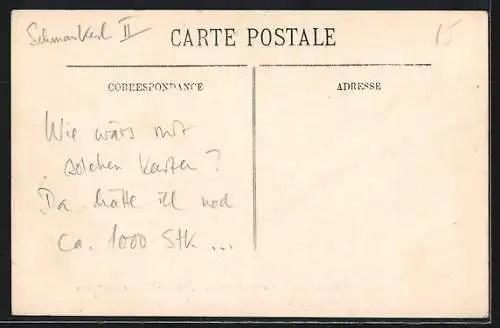 Schmankerl II
CARTE POSTALE
15
CORRESPONDANCE
ADRESSE
Wie wärs mit
solchen Karten?
Da hätte ich noch
ca. 1000 Stk...